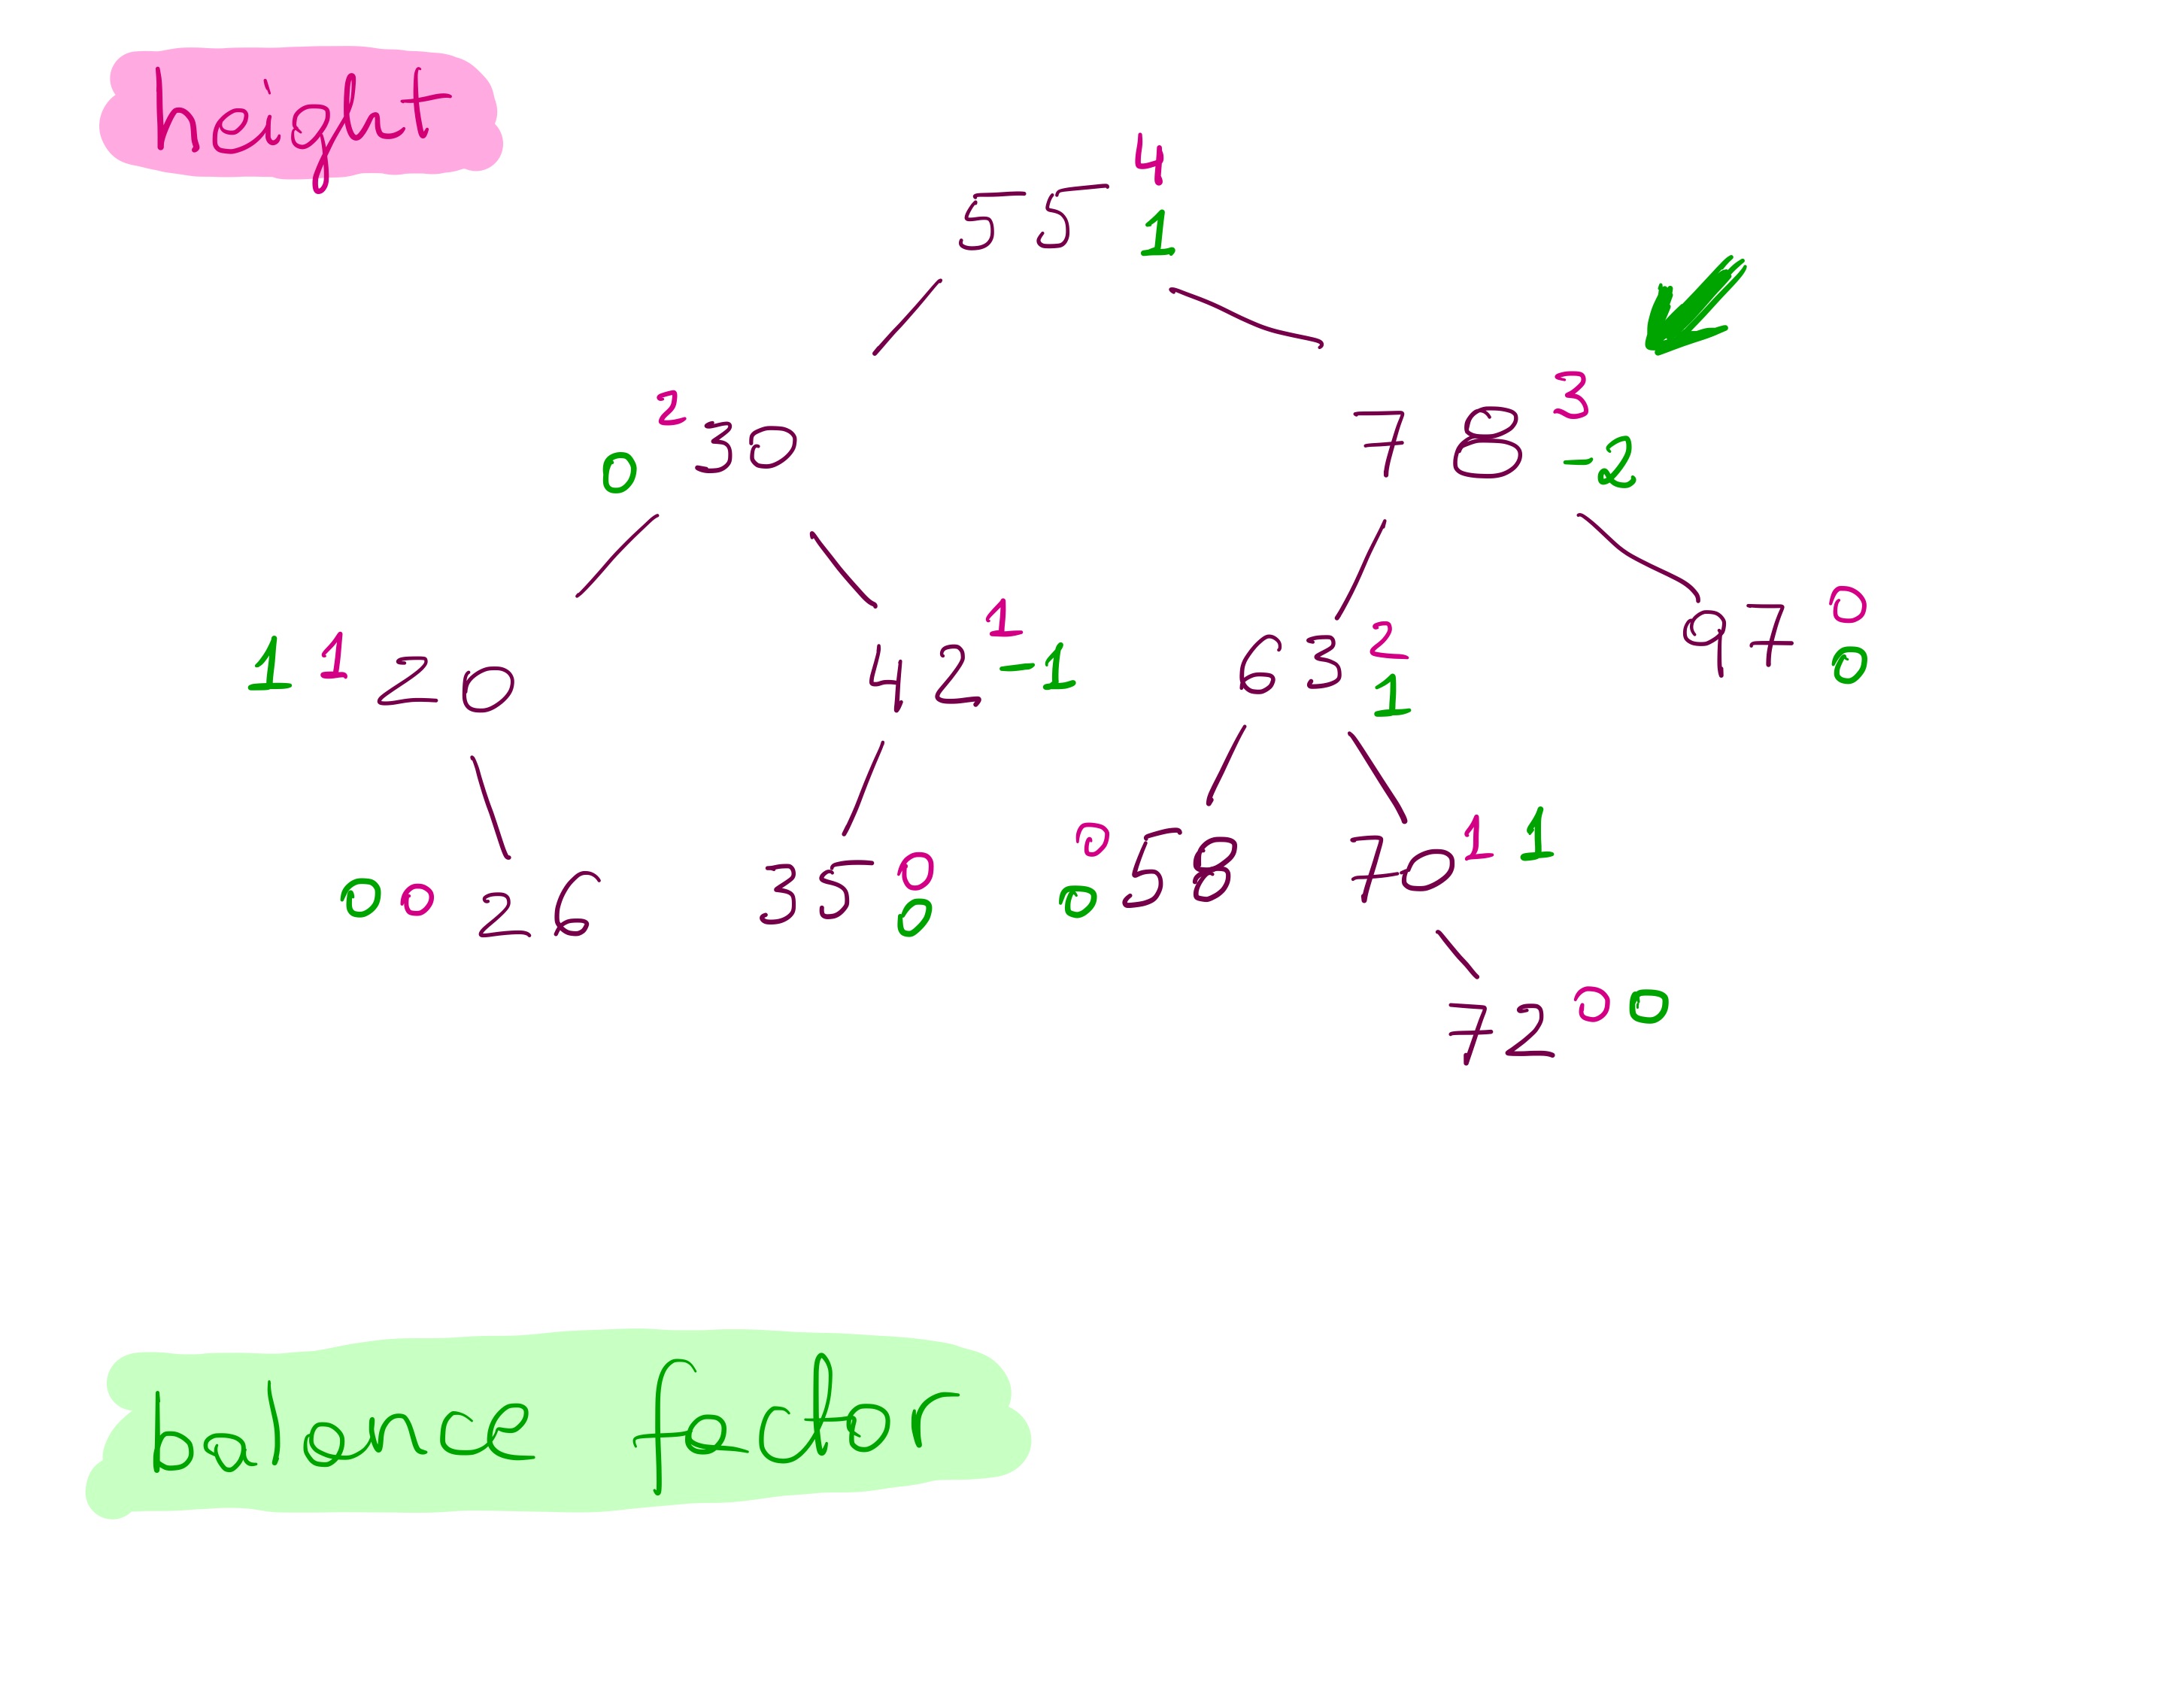 height
4
55
1
2
30
0
3
78
-2
1 1 20
1
42
-1
63
2
1
97
0
0
0 0 26
35
0
0
0
0
58
70 1 1
72 0 0
balance factor